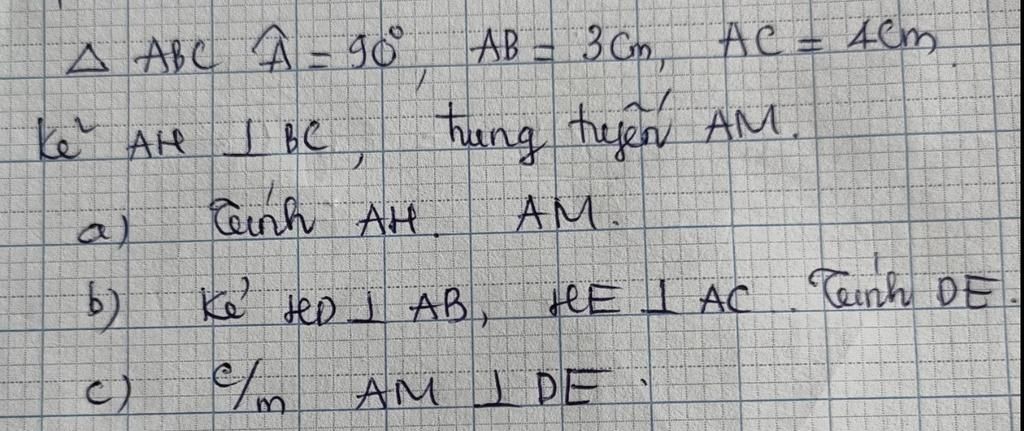 △ ABC Â = 90°, AB = 3cm, AC = 4cm.
Kẻ AH ⊥ BC, trung tuyến AM.
a) Tính AH. AM.
b) Kẻ HD ⊥ AB, HE ⊥ AC. Tính DE.
c) c/m AM ⊥ DE.